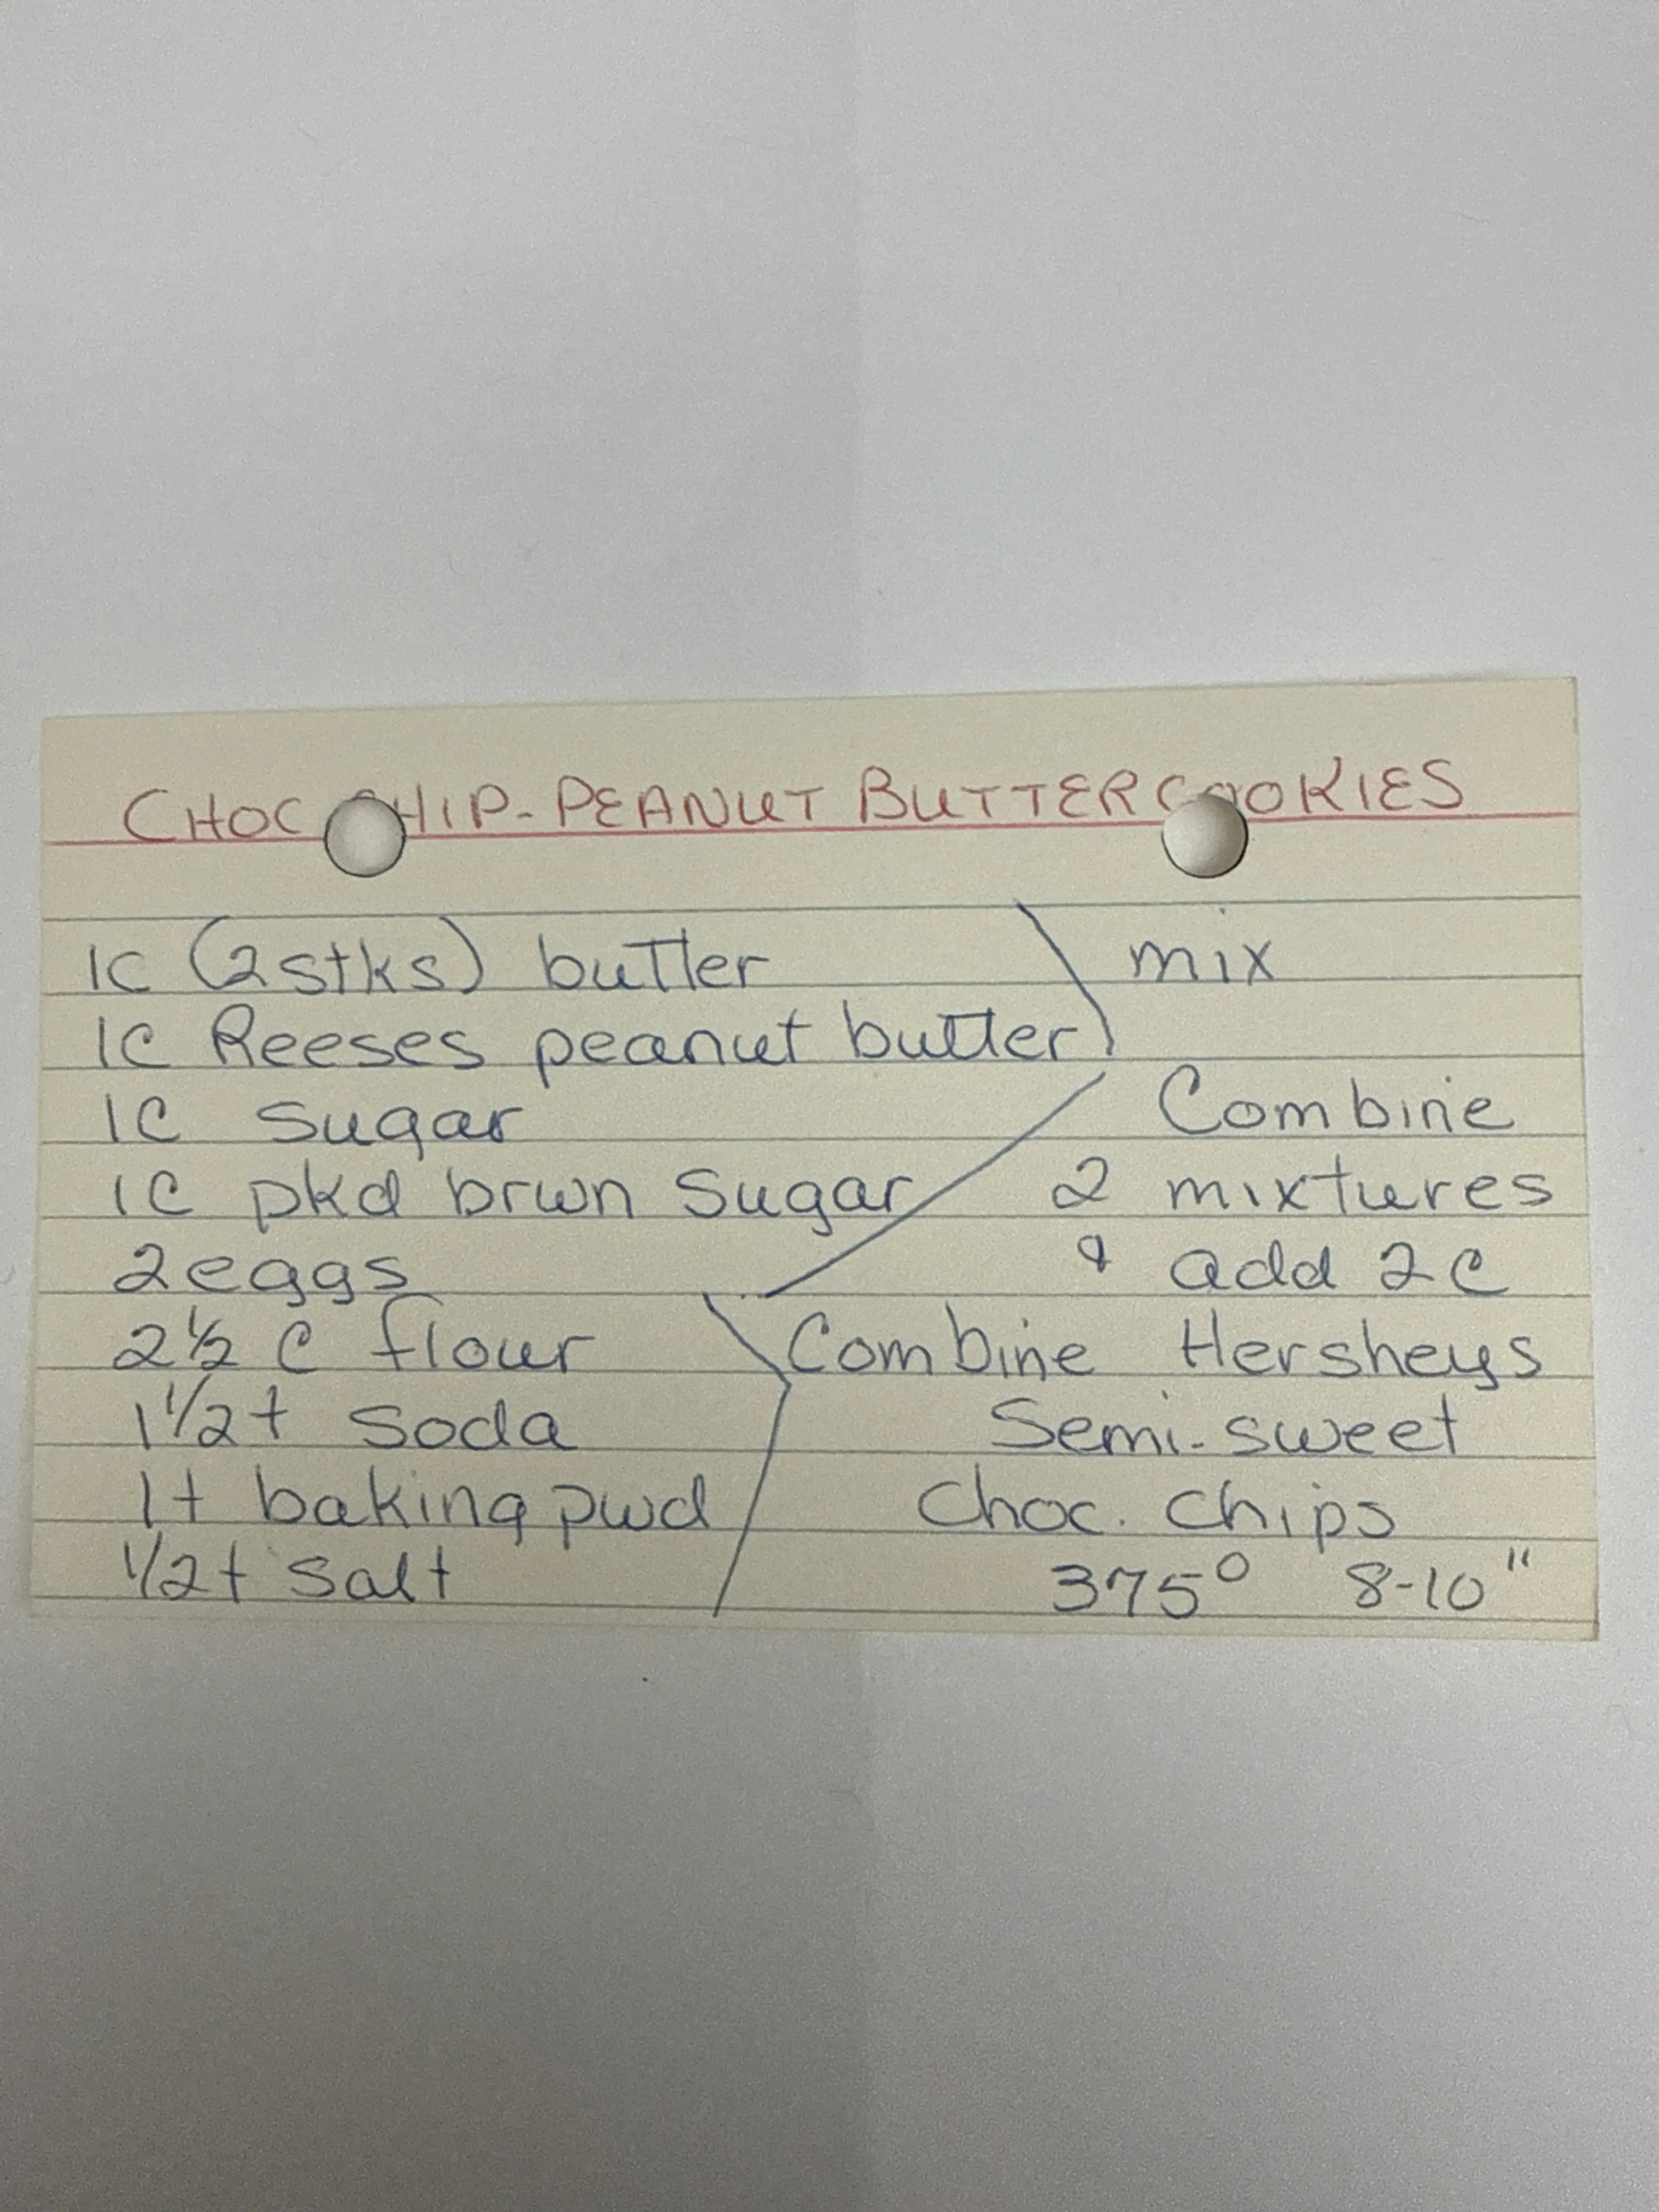 CHOC CHIP-PEANUT BUTTER COOKIES
1C (2stks) butter
mix
1C Reeses peanut butter
1C sugar
Combine
1C pkd brwn sugar
2 mixtures
2eggs
& add 2C
2½ C flour
Combine Hersheys
1 1/2 t soda
Semi-sweet
1t baking pwd
choc. chips
1/2 t salt
375° 8-10"